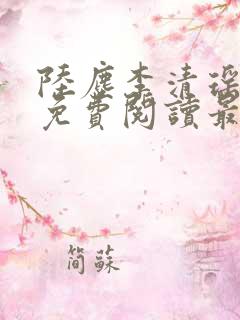 陸塵李清瑤
免費閱讀最
簡蘇